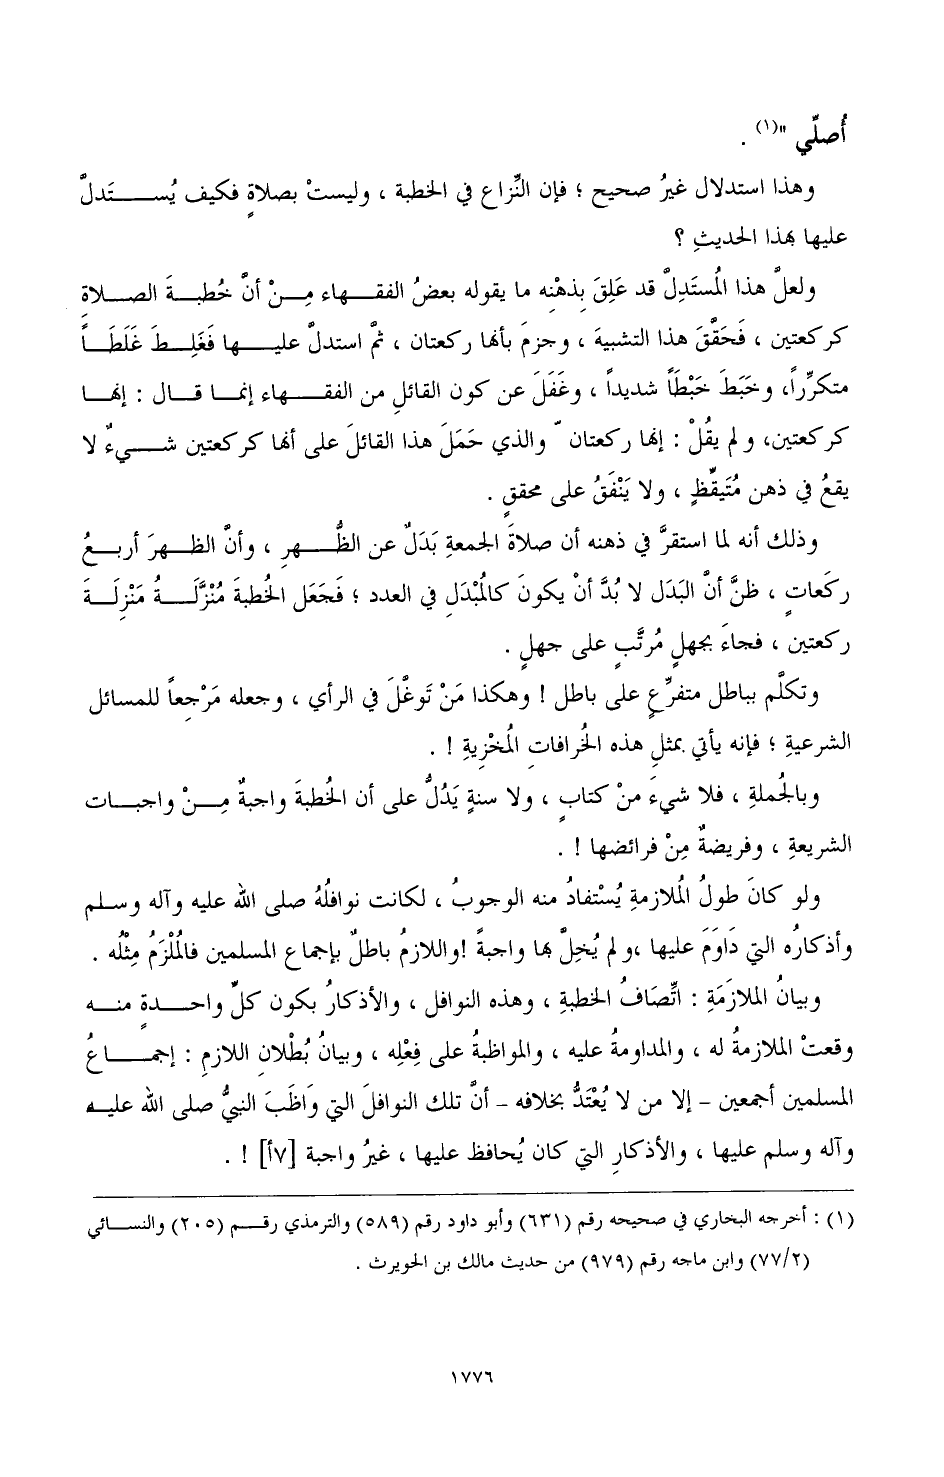 أُصلِّي "(١) .
وهذا استدلال غيرُ صحيح ؛ فإن النِّزاع في الخطبة ، وليستْ بصلاةٍ فكيف يُستَدلَّ
عليها بهذا الحديثِ ؟
ولعلَّ هذا المُستَدِلَّ قد عَلِقَ بذهْنِه ما يقوله بعضُ الفقهاء مِنْ أنَّ خُطبةَ الصلاةِ
كركعتين ، فَحَقَّقَ هذا التشبيهَ ، وجزمَ بأنها ركعتان ، ثمَّ استدلَّ عليها فَغَلِطَ غَلَطَاً
متكرِّراً، وخَبَطَ خَبْطَاً شديداً ، وغَفَلَ عن كون القائلِ من الفقهاء إنما قال : إنها
كركعتين، ولم يقُلْ : إنها ركعتان ّ والذي حَمَلَ هذا القائلَ على أنها كركعتين شيءٌ لا
يقعُ في ذهن مُتَيقِّظٍ ، ولا يَنْفَقُ على محققٍ .
وذلك أنه لما استقرَّ في ذهنه أن صلاةَ الجمعةِ بَدَلٌ عن الظُّهرِ ، وأنَّ الظهرَ أربعُ
ركَعاتٍ ، ظنَّ أنَّ البَدَل لا بُدَّ أنْ يكونَ كالمُبْدَلِ في العدد ؛ فَجَعَل الخُطبةَ مُنْزَّلَةُ مَنْزِلَةَ
ركعتين ، فجاءَ بجهلٍ مُرتَّبٍ على جهلٍ .
وتكلَّم بباطلٍ متفرِّعٍ على باطل ! وهكذا مَنْ تَوغَّلَ في الرأي ، وجعله مَرْجعاً للمسائل
الشرعيةِ ؛ فإنه يأتي بمثلِ هذه الخُرافاتِ المُخْزيةِ ! .
وبالجُملةِ ، فلا شيءَ منْ كتابٍ ، ولا سنةٍ يَدُلُّ على أن الخُطبةَ واجبةٌ مِنْ واجبات
الشريعةِ ، وفريضةٌ مِنْ فرائضها ! .
ولو كانَ طولُ المُلازمةِ يُسْتفادُ منه الوجوبُ ، لكانت نوافلُهُ صلى الله عليه وآله وسلم
وأذكارُه التي دَاوَمَ عليها ،ولم يُخِلَّ بها واجبةً !واللازمُ باطلٌ بإجماع المسلمين فالمُلْزَمُ مِثْلُه .
وبيانُ الملازَمَةِ : اتِّصَافُ الخطبةِ ، وهذه النوافل ، والأذكارُ بكون كلِّ واحدةٍ منه
وقعتْ الملازمةُ له ، والمداومةُ عليه ، والمواظبةُ على فِعْلِه ، وبيانُ بُطْلانِ اللازمِ : إجماعُ
المسلمين أجمعين - إلا من لا يُعْتَدُّ بخلافه - أنَّ تلك النوافلَ التي وَاظَبَ النبيُّ صلى الله عليه
وآله وسلم عليها ، والأذكارِ التي كان يُحافظ عليها ، غيرُ واجبة [٧أ] ! .
(١) : أخرجه البخاري في صحيحه رقم (٦٣١) وأبو داود رقم (٥٨٩) والترمذي رقم (٢٠٥) والنسائي
(٧٧/٢) وابن ماجه رقم (٩٧٩) من حديث مالك بن الحويرث .
١٧٧٦